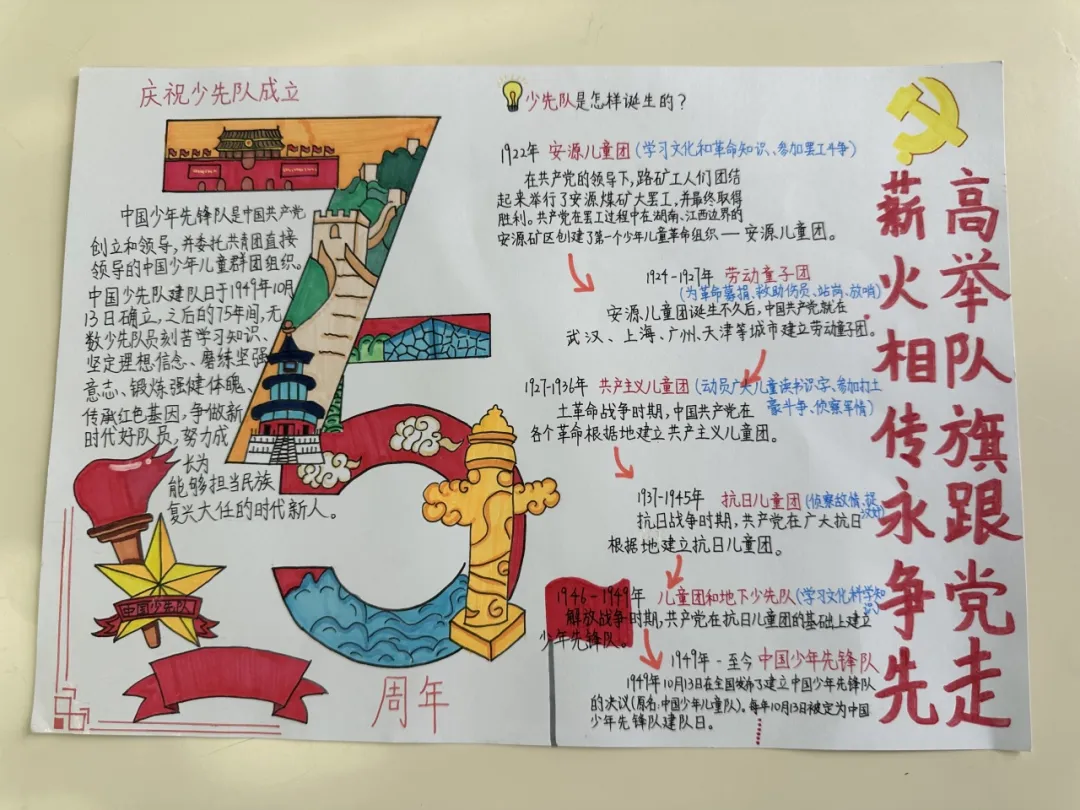 庆祝少先队成立
中国少年先锋队是中国共产党
创立和领导,并委托共青团直接
领导的中国少年儿童群团组织。
中国少先队建队日于1949年10月
13日确立,之后的75年间,无
数少先队员刻苦学习知识、
坚定理想信念、磨练坚强
意志、锻炼强健体魄、
传承红色基因,争做新
时代好队员,努力成
长为
能够担当民族
复兴大任的时代新人。
中国少先队
周年
少先队是怎样诞生的?
1922年 安源儿童团(学习文化和革命知识、参加罢工斗争)
在共产党的领导下,路矿工人们团结
起来举行了安源煤矿大罢工,并最终取得
胜利。共产党在罢工过程中在湖南、江西边界的
安源矿区创建了第一个少年儿童革命组织——安源儿童团。
1924-1927年 劳动童子团
(为革命募捐、救助伤员、站岗、放哨)
安源儿童团诞生不久后,中国共产党就在
武汉、上海、广州、天津等城市建立劳动童子团。
1927-1936年 共产主义儿童团(动员广大儿童读书识字、参加打土
豪斗争、侦察军情)
土革命战争时期,中国共产党在
各个革命根据地建立共产主义儿童团。
1937-1945年 抗日儿童团(侦察敌情、捉
汉奸)
抗日战争时期,共产党在广大抗日
根据地建立抗日儿童团。
1946-1949年 儿童团和地下少先队(学习文化科学知
识)
解放战争时期,共产党在抗日儿童团的基础上建立
少年先锋队。
1949年-至今 中国少年先锋队
1949年10月13日在全国发布了建立中国少年先锋队
的决议(原名:中国少年儿童队)。每年10月13日被定为中国
少年先锋队建队日。
高举队旗跟党走
薪火相传永争先